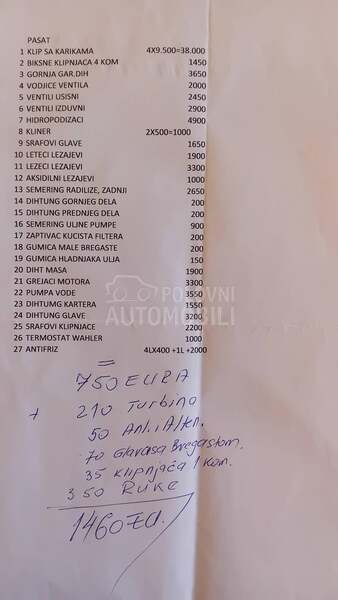 PASAT
1 KLIP SA KARIKAMA 4X9.500=38.000
2 BIKSNE KLIPNJACA 4 KOM 1450
3 GORNJA GAR.DIH 3650
4 VODJICE VENTILA 2000
5 VENTILI USISNI 2450
6 VENTILI IZDUVNI 2900
7 HIDROPODIZACI 4900
8 KLINER 2X500=1000
9 SRAFOVI GLAVE 1650
10 LETECI LEZAJEVI 1900
11 LEZECI LEZAJEVI 3300
12 AKSIDILNI LEZAJEVI 1000
13 SEMERING RADILIZE, ZADNJI 2650
14 DIHTUNG GORNJEG DELA 200
15 DIHTUNG PREDNJEG DELA 200
16 SEMERING ULJNE PUMPE 900
17 ZAPTIVAC KUCISTA FILTERA 200
18 GUMICA MALE BREGASTE 200
19 GUMICA HLADNJAKA ULJA 150
20 DIHT MASA 1900
21 GREJACI MOTORA 3300
22 PUMPA VODE 3550
23 DIHTUMG KARTERA 1550
24 DIHTUNG GLAVE 3200
25 SRAFOVI KLIPNJACE 2200
26 TERMOSTAT WAHLER 1000
27 ANTIFRIZ 4LX400 +1L +2000
POLOVNI
AUTOMOBILI
=
750 EURA
+ 210 Turbina
50 Anl. i Altn.
70 Glavasa Bregastom.
35 Klipnjača 1 kom.
350 Ruke
1460